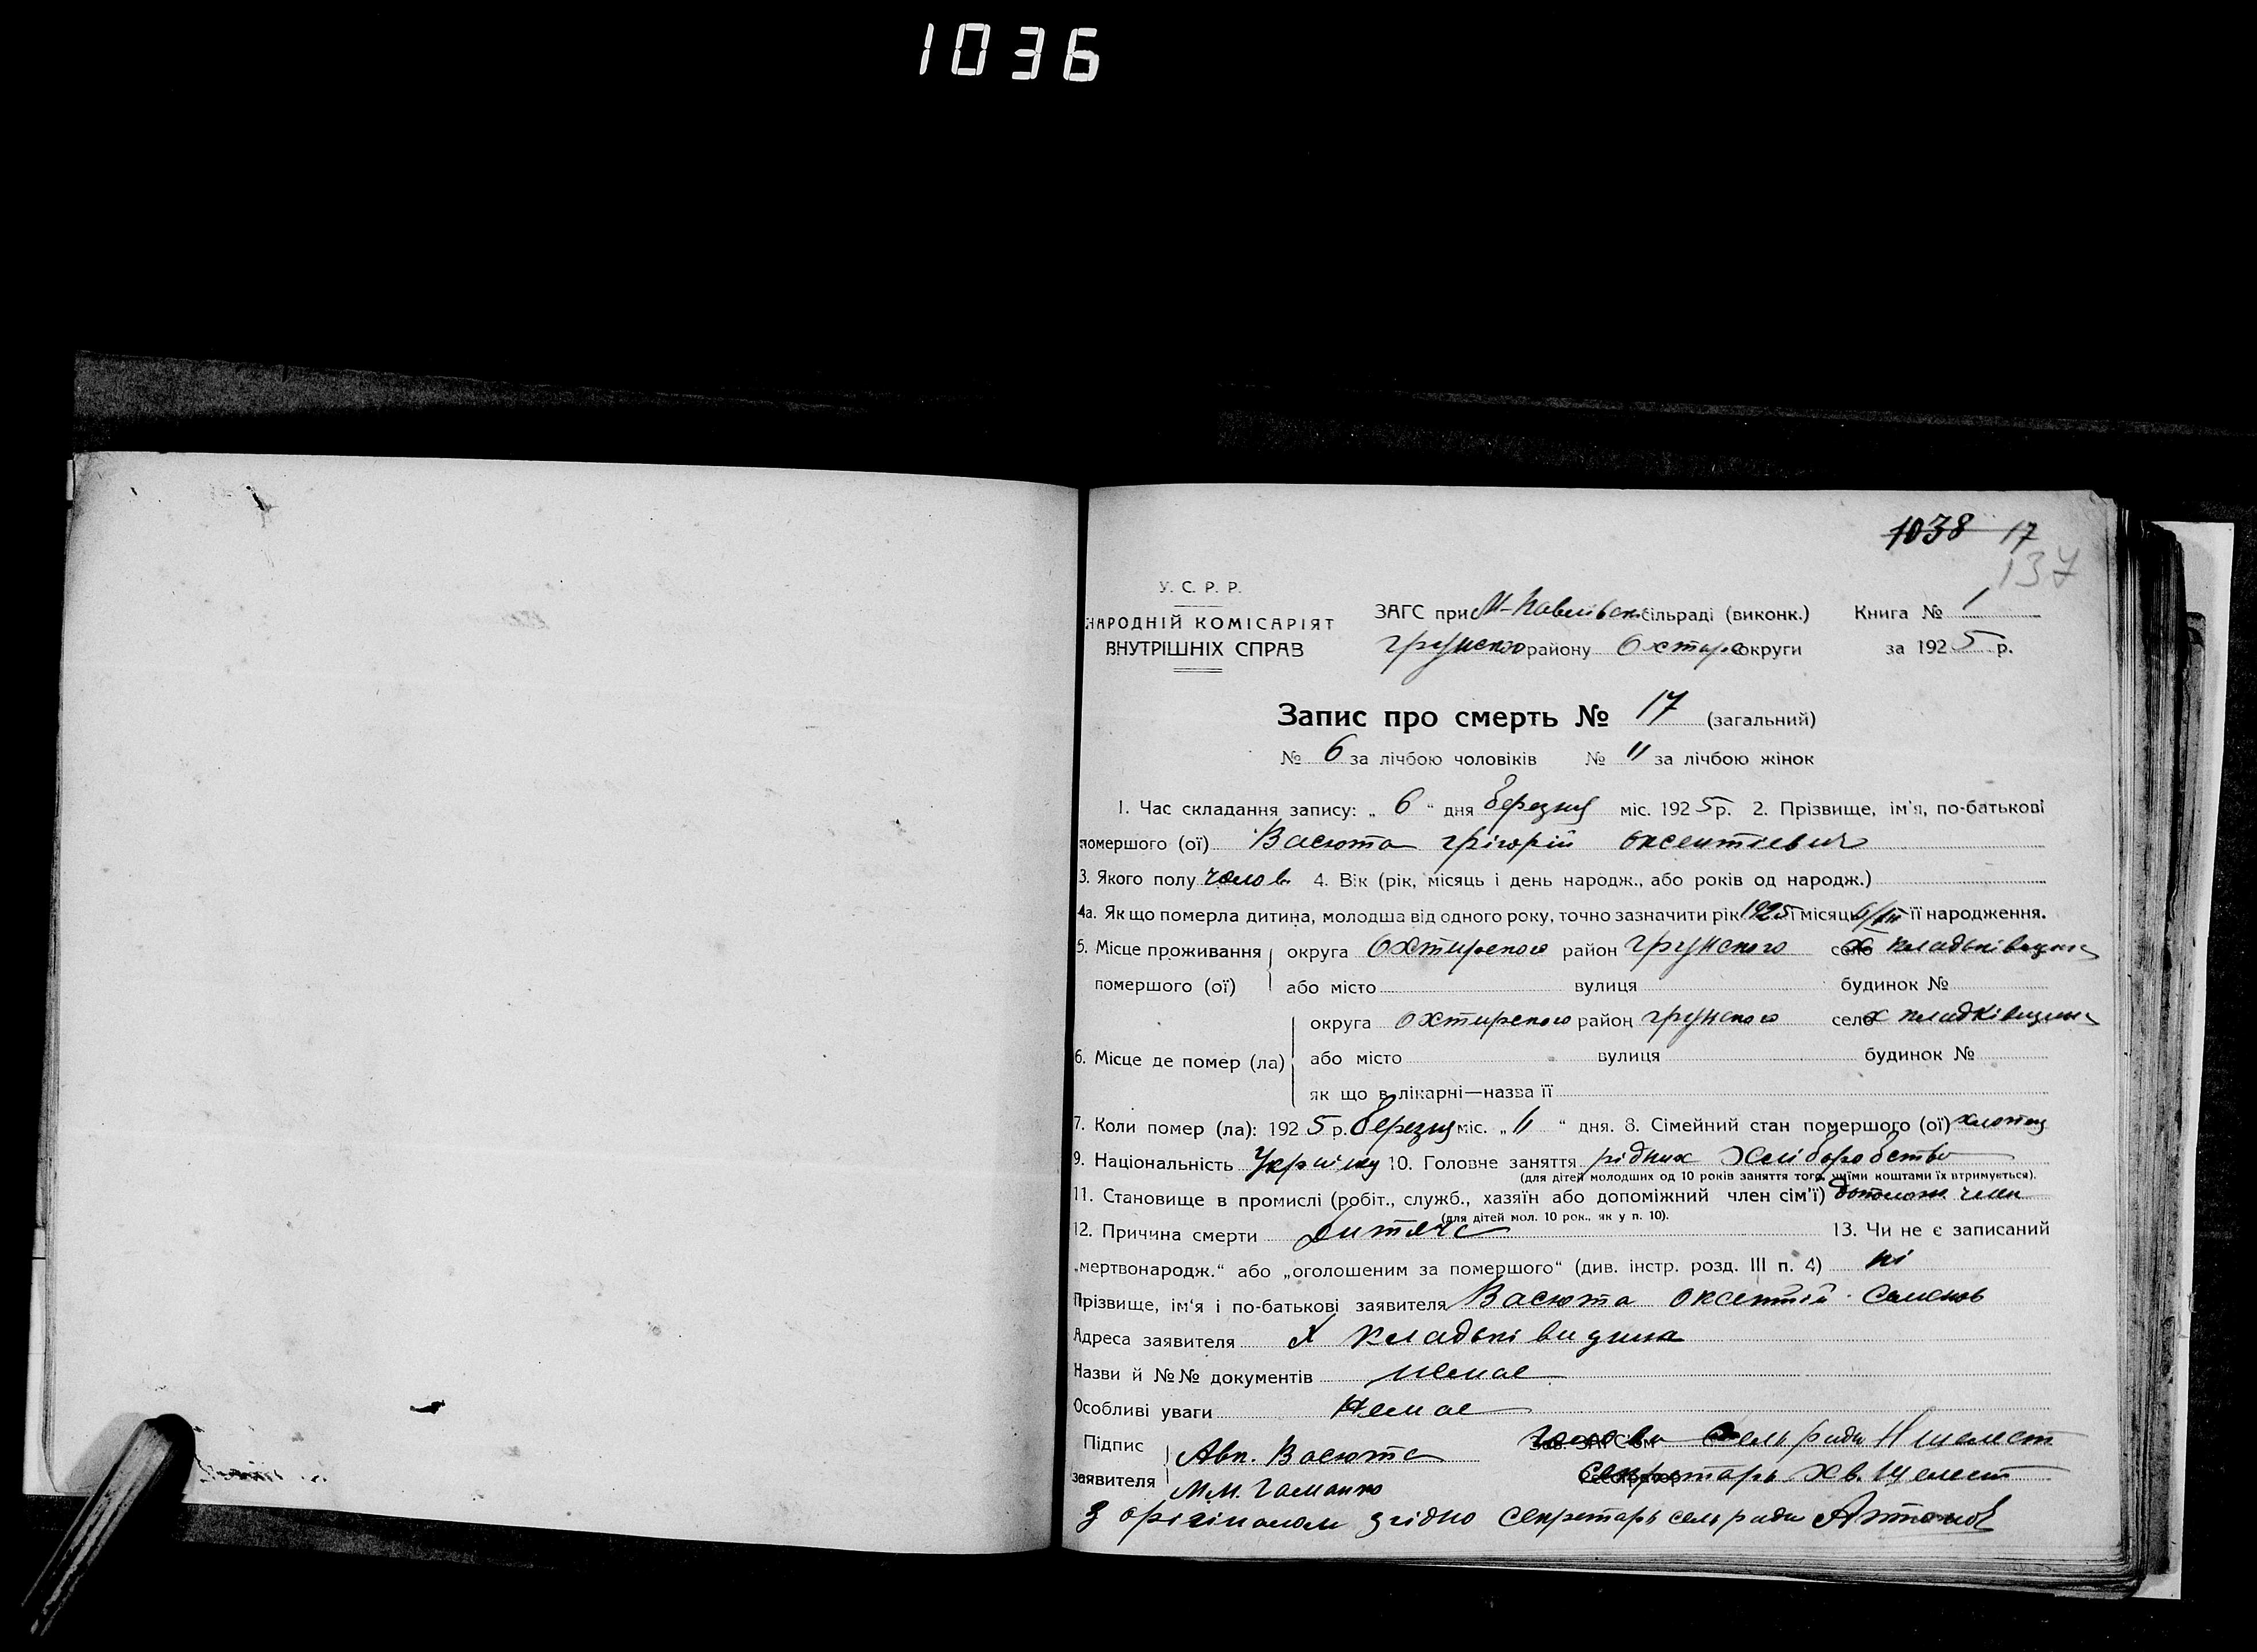 1036
1038 17
137
У. С. Р. Р.
НАРОДНІЙ КОМІСАРІЯТ
ВНУТРІШНІХ СПРАВ
ЗАГС при сільраді (виконк.) Книга № 1
грунского району Охтирс округи за 1925 р.
Запис про смерть № 17 (загальний)
№ 6 за лічбою чоловіків № 11 за лічбою жінок
1. Час складання запису: „ 6 “ дня березня міс. 1925 р. 2. Прізвище, ім'я, по-батькові
помершого (ої) Васюта грігорій оксентіевич
3. Якого полу чолов 4. Вік (рік, місяць і день народж., або років од народж.)
4а. Як що померла дитина, молодша від одного року, точно зазначити рік 1925 і місяць 6/III її народження.
5. Місце проживання округа Охтирского район грунского село х кладьківщина
помершого (ої) або місто вулиця будинок №
округа охтирского район грунского село х кладківщина
6. Місце де помер (ла) або місто вулиця будинок №
як що в лікарні—назва її
7. Коли помер (ла): 1925 р. березня міс. „ 11 “ дня. 8. Сімейний стан помершого (ої) хлопец
9. Національність 10. Головне заняття рідних хліборобство
(для дітей молодших од 10 років заняття того, чиїми коштами їх втримується).
11. Становище в промислі (робіт., служб., хазяїн або допоміжний член сім'ї) допомож член
(для дітей мол. 10 рок., як у п. 10).
12. Причина смерти дитяче 13. Чи не є записаний
„мертвонародж.“ або „оголошеним за помершого“ (див. інстр. розд. III п. 4) ні
Прізвище, ім'я і по-батькові заявителя Васюта оксентій Семенов
Адреса заявителя Х кладьківщина
Назви й №№ документів немае
Особливі уваги Немае
Підпис Авк. Васюта Зав. ЗАГСом голова Сельради Н шелест
заявителя М.М. Реєстратор Секретарь Хв. Шелест
З оригіналом згідно секретарь сельради Антонов